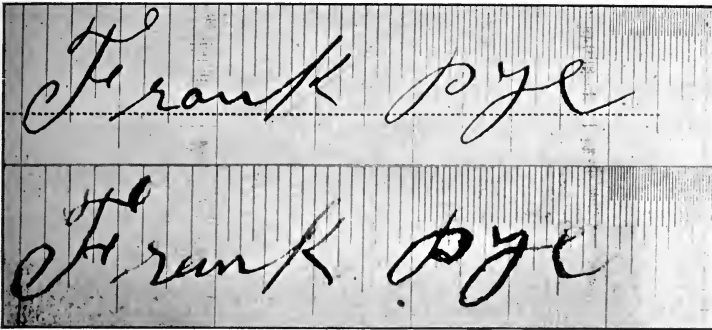 Frank pye
Frank pye